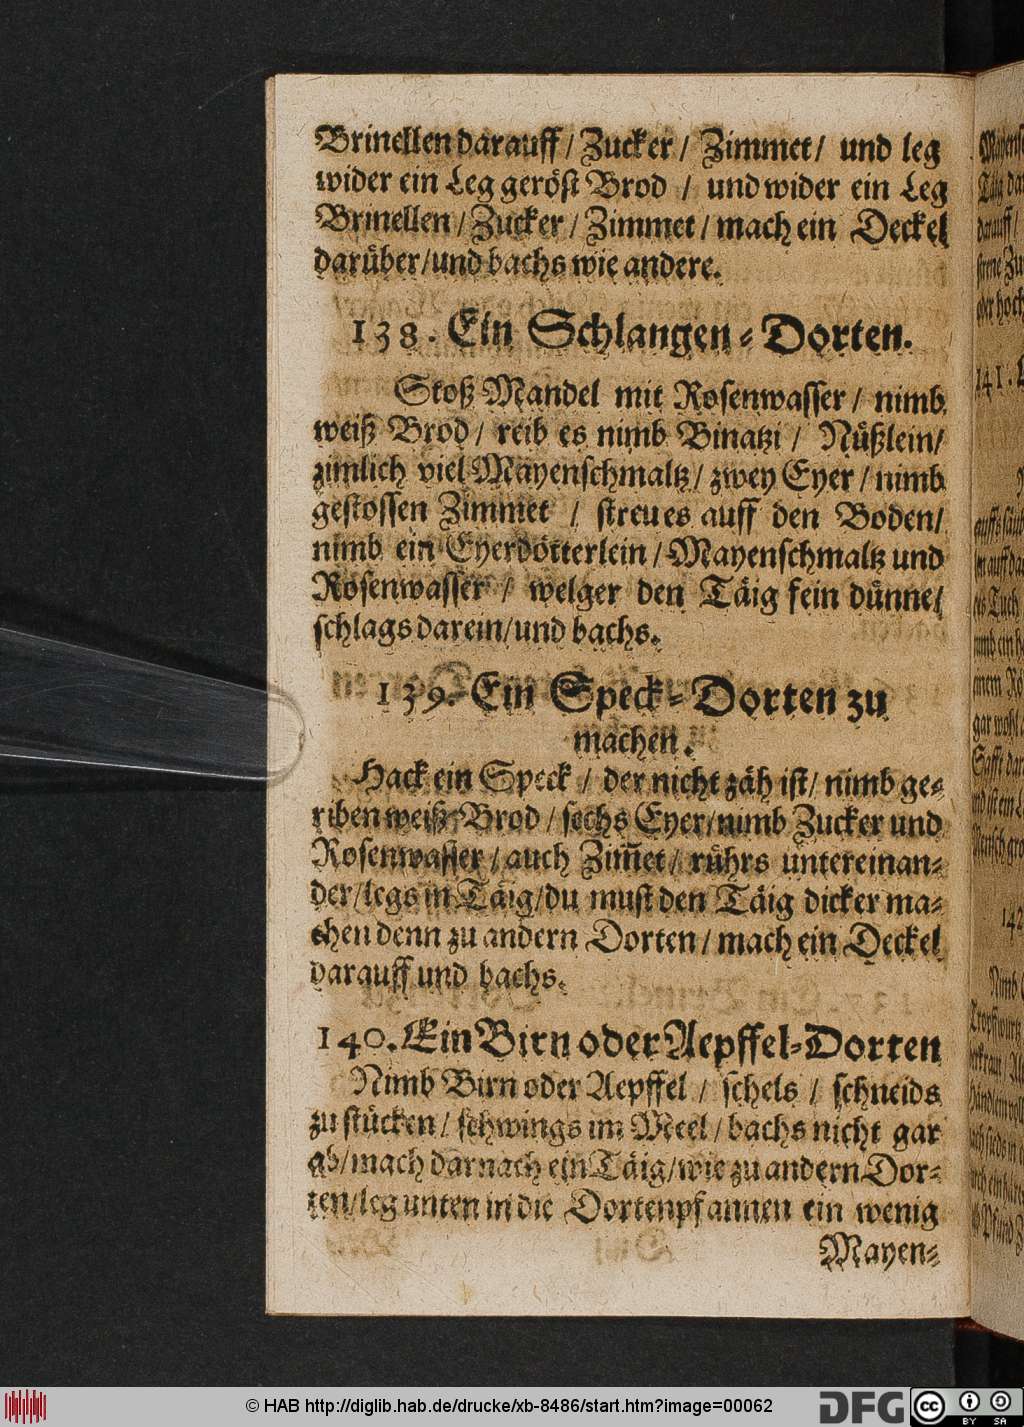 Brinellen darauff / Zucker / Zimmet / und leg
wider ein Leg geröst Brod / und wider ein Leg
Brinellen / Zucker / Zimmet / mach ein Deckel
darüber / und bachs wie andere.
138. Ein Schlangen-Dorten.
Stoß Mandel mit Rosenwasser / nimb
weiß Brod / reib es nimb Binatzi / Nüßlein /
zimlich viel Mayenschmaltz / zwey Eyer / nimb
gestossen Zimmet / streu es auff den Boden /
nimb ein Eyerdötterlein / Mayenschmaltz und
Rosenwasser / welger den Täig fein dünne /
schlags darein / und bachs.
139. Ein Speck-Dorten zu
machen.
Hack ein Speck / der nicht zäh ist / nimb ge-
riben weiß Brod / sechs Eyer / nimb Zucker und
Rosenwasser / auch Zim̃et / rührs untereinan-
der / legs in Täig / du must den Täig dicker ma-
chen denn zu andern Dorten / mach ein Deckel
darauff und bachs.
140. Ein Birn oder Aepffel-Dorten
Nimb Birn oder Aepffel / schels / schneids
zu stücken / schwings im Meel / bachs nicht gar
ab / mach darnach ein Täig / wie zu andern Dor-
ten / leg unten in die Dortenpfannen ein wenig
Mayen-
141.
142
© HAB http://diglib.hab.de/drucke/xb-8486/start.htm?image=00062
DFG
cc
BY SA